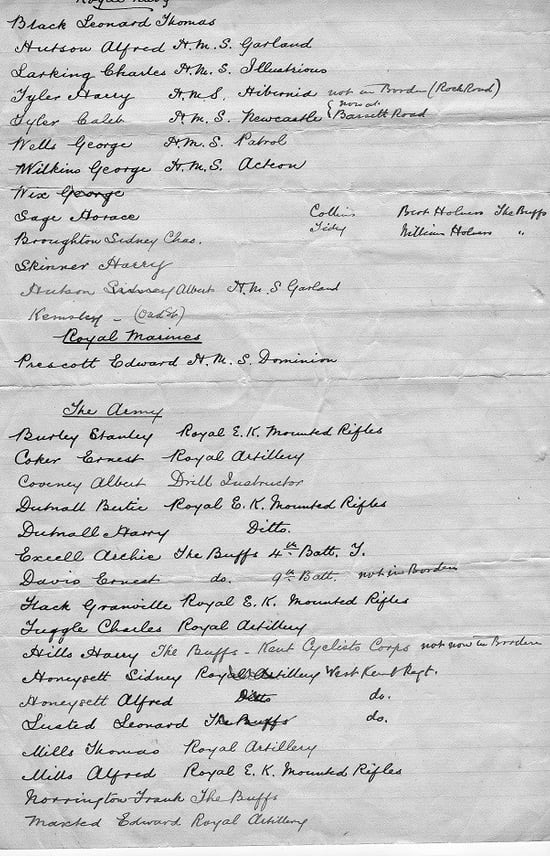 Royal Navy
Black Leonard Thomas
Hutson Alfred H.M.S. Garland
Larking Charles H.M.S. Illustrious
Tyler Harry H.M.S. Hibernia not in Borden (Rock Road)
Tyler Caleb H.M.S. Newcastle { now at Bassett Road
Wells George H.M.S. Patrol
Wilkins George H.M.S. Acteon
Wix George
Sage Horace Collins Bert Holmes The Buffs
Broughton Sidney Chas. Tidy William Holmes "
Skinner Harry
Hutson Sidney Albert H.M.S Garland
Kemsley - (Oad St)
Royal Marines
Prescott Edward H.M.S. Dominion
The Army
Burley Stanley Royal E.K. Mounted Rifles
Coker Ernest Royal Artillery
Coveney Albert Drill Instructor
Dutnall Bertie Royal E.K. Mounted Rifles
Dutnall Harry Ditto.
Excell Archie The Buffs 4th Batt. T.
Davis Ernest do. 9th Batt. not in Borden
Flack Granville Royal E.K. Mounted Rifles
Fuggle Charles Royal Artillery
Hills Harry The Buffs - Kent Cyclists Corps not now in Borden
Honeysett Sidney Royal Artillery West Kent Regt.
Honeysett Alfred Ditto do.
Lusted Leonard The Buffs do.
Mills Thomas Royal Artillery
Mills Alfred Royal E.K. Mounted Rifles
Norrington Frank The Buffs
Maxted Edward Royal Artillery